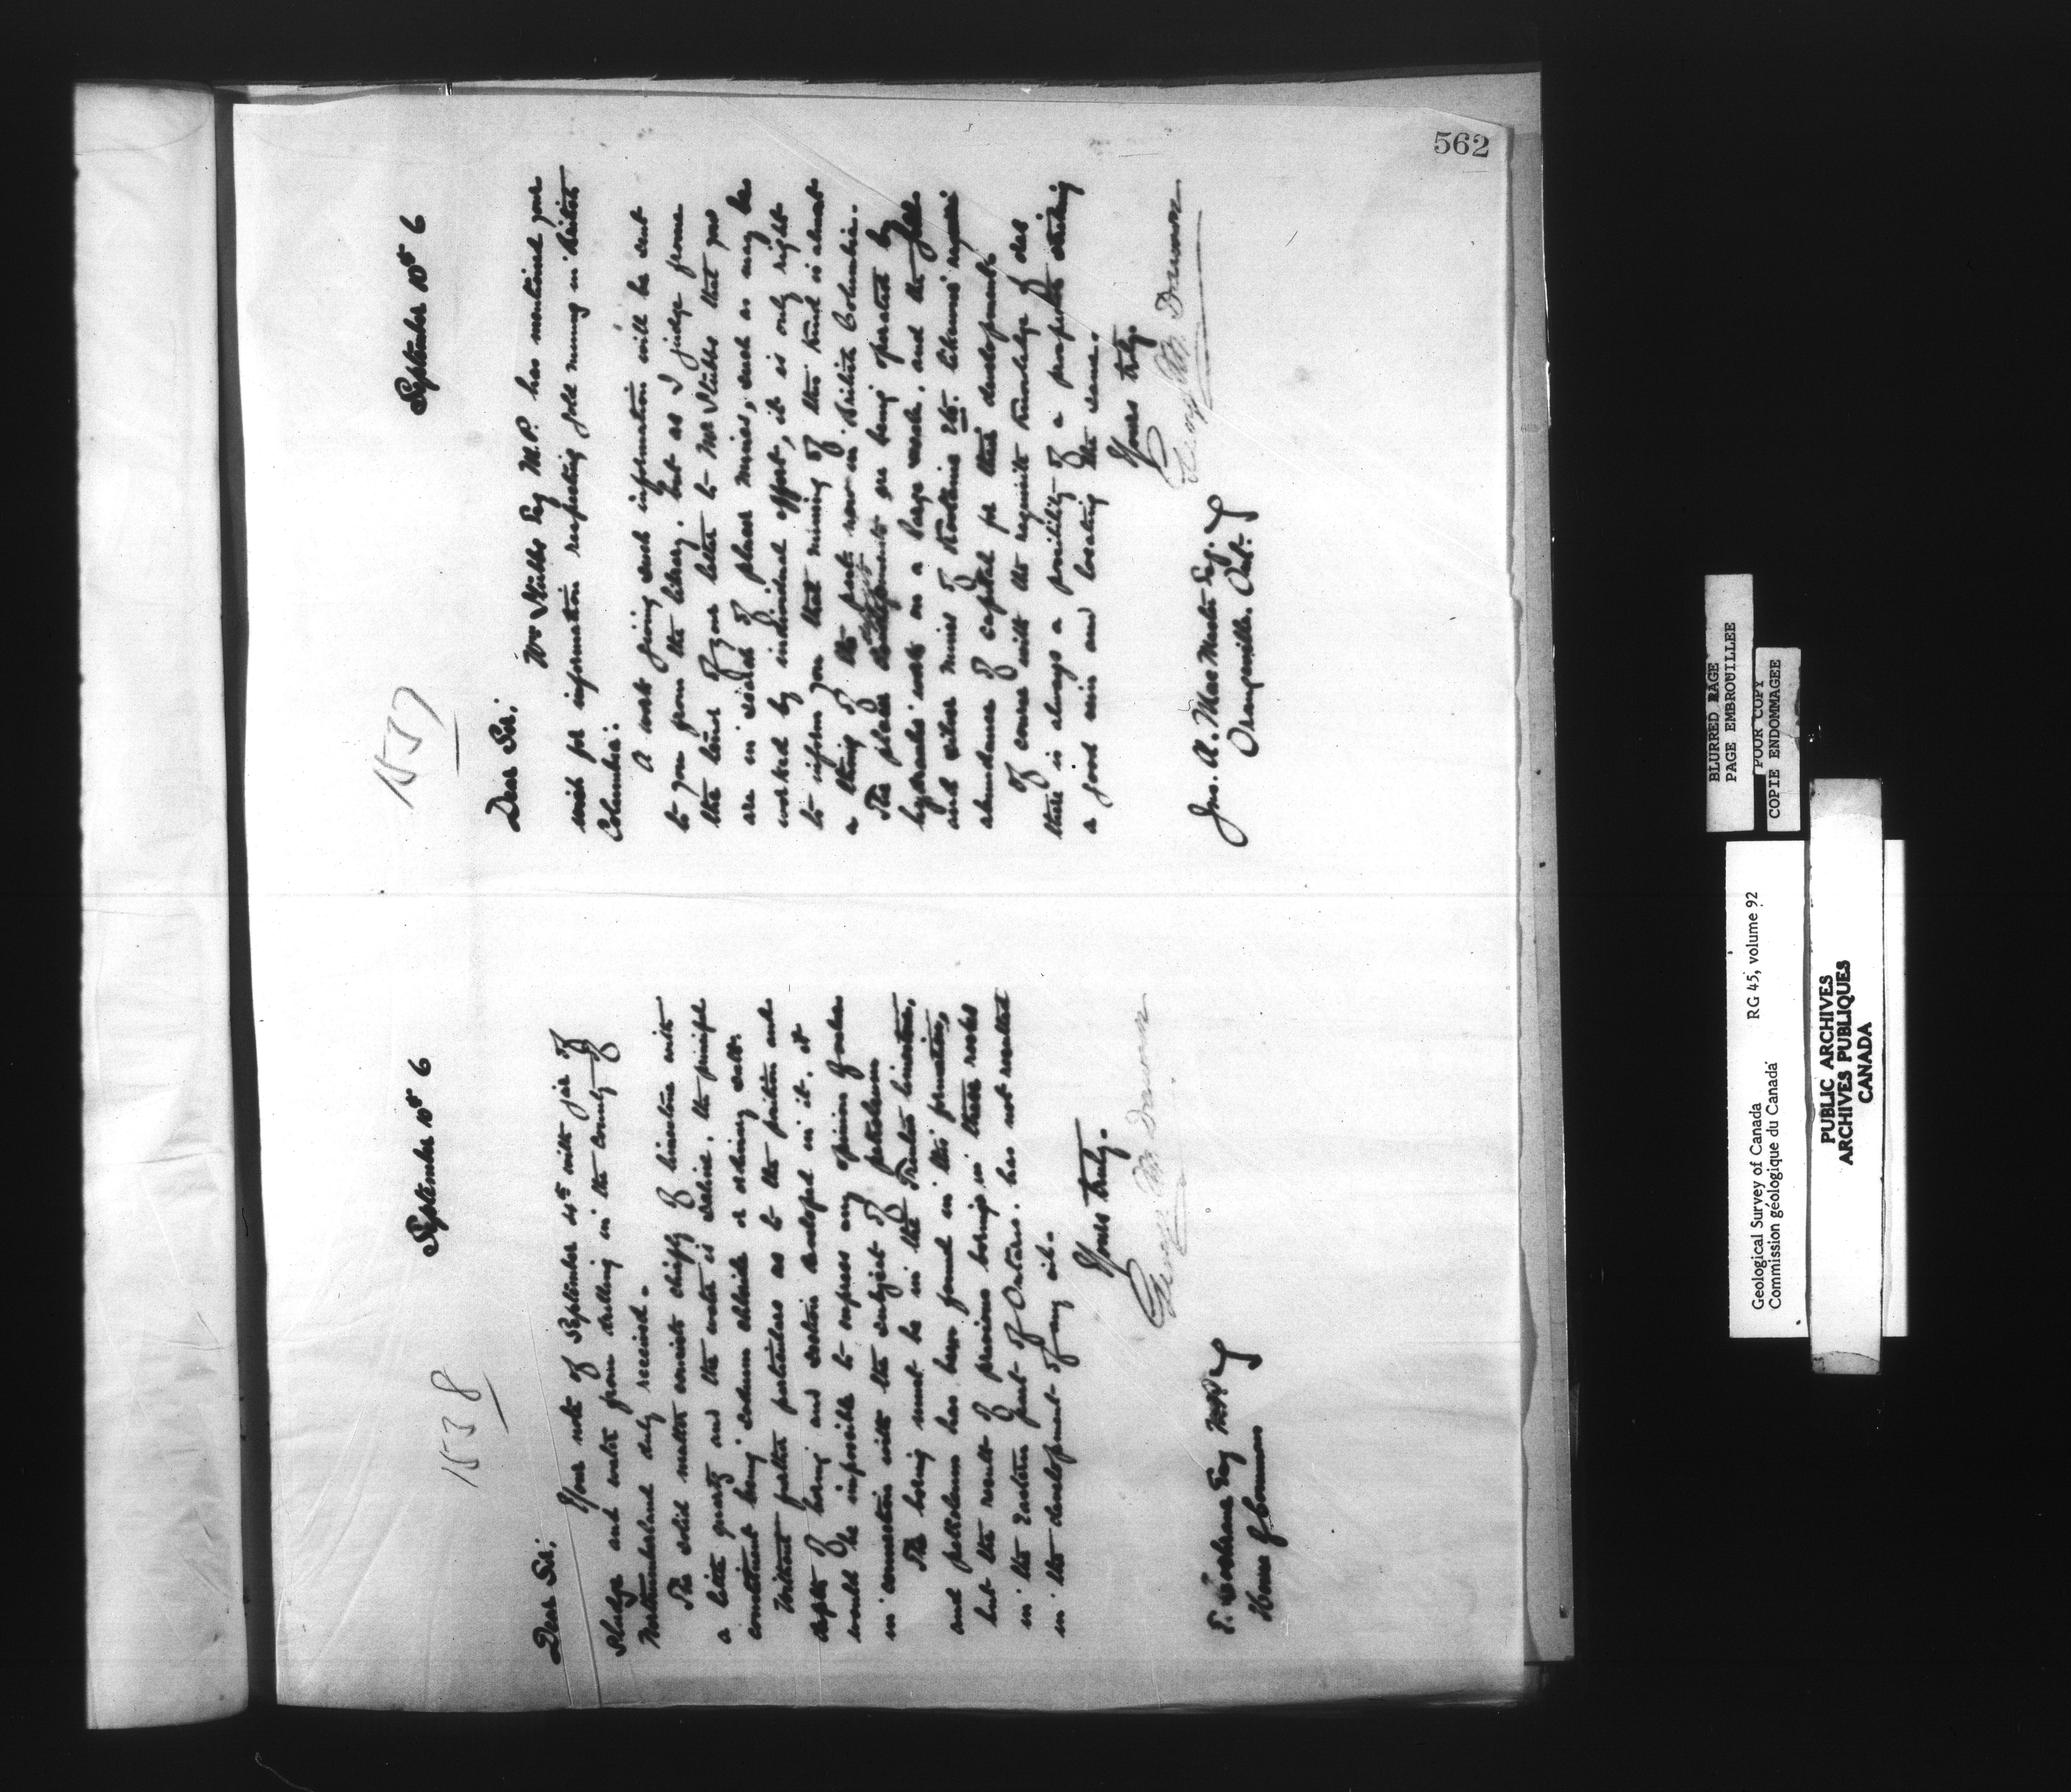 1538
September 10th 6
Dear Sir;
Your note of September 4th with jar of
sludge and water from drilling in the County of
Northumberland duly received.
The solid matter consists chiefly of limestone with
a little quartz and the water is saline, the principal
constituent being sodium chloride or ordinary salt.
Without further particulars as to the position and
depth of boring and section developed in it, it
would be impossible to express any opinion of value
in connection with the subject of petroleum
The boring must be in the Trenton limestone,
and petroleum has been found in this formation,
but the result of previous borings in these rocks
in the Eastern part of Ontario, has not resulted
in the development of any oil.
Yours truly.
George M. Dawson
E. Cochrane Esq M.P.
House of Commons
1537
September 10th 6
Dear Sir;
Wm Stubbs Esq M.P. has mentioned your
wish for information respecting gold mining in British
Columbia.
A work giving such information will be sent
to you from the library, but as I judge from
the tenor of your letter to Mr Stubbs that you
are in search of placer mines, such as may be
worked by individual effort, it is only right
to inform you that mining of this kind is almost
a thing of the past now in British Columbia.
The placer deposits are being operated by
hydraulic work on a large scale, and the gold
and silver mines of Kootenie etc. likewise require
abundance of capital for their development
Of course with the requisite knowledge of ores
there is always a possibility of a prospector striking
a good vein and locating the same.
Yours truly.
George M. Dawson
Jno. A. MacMaster Esq.
Orangeville. Ont.
562
BLURRED PAGE
PAGE EMBROUILLEE
POOR COPY
COPIE ENDOMMAGEE
Geological Survey of Canada RG 45, volume 92
Commission géologique du Canada
PUBLIC ARCHIVES
ARCHIVES PUBLIQUES
CANADA